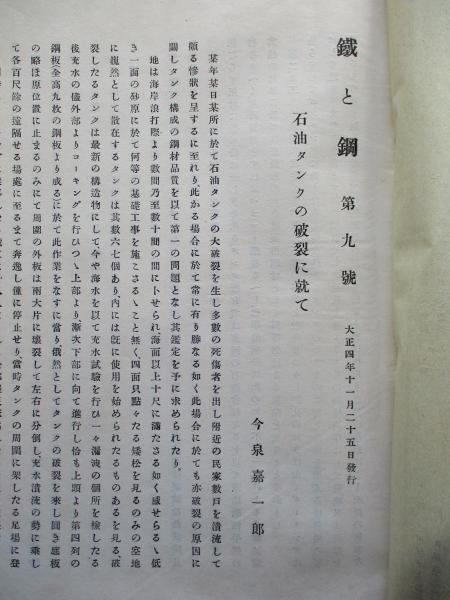 鐵と鋼 第九號 大正四年十一月二十五日發行
石油タンクの破裂に就て
今泉嘉一郎
某年某日某所に於て石油タンクの大破裂を生し多數の死傷者を出し附近の民家數戸を潰流して
頗る慘狀を呈するに至れり、此かる場合に於て常に有り勝なる如く此場合に於ても亦破裂の原因に
關しタンク構成の鋼材品質を以て第一の問題となし其鑑定を予に求められたり。
地は海岸浪打際より數間乃至數十間の間に卜せられ、海面以上十尺に滿たさる如く感せらるゝ低
き一面の砂原に於て何等の基礎工事を施こさるゝこと無く、四面只點々たる矮松を見るのみの空地
に巍然として散在するタンクは其數六七個あり、内には旣に使用を始められたるものあるを見る、破
裂したるタンクは最新の構造物にして、今や海水を以て充水試驗を行ひ一々漏洩の個所を檢したる
後充水の儘外部よりコーキングを行ひつゝ上部より、漸次下部に向て進行し恰も上頭より第四列の
鋼板(全高九枚の鋼板より成る)に於て此作業をなすに當り俄然としてタンクの破裂を來し圓き底板
の略ほ原位置に止まるのみにて周圍の外板は兩大片に壊裂して左右に分倒し、充水潰流の勢に乘し
て各百尺餘の遠隔せる場處に至るまて奔逸し僅に停止せり、當時タンクの周圍に架したる足場に登